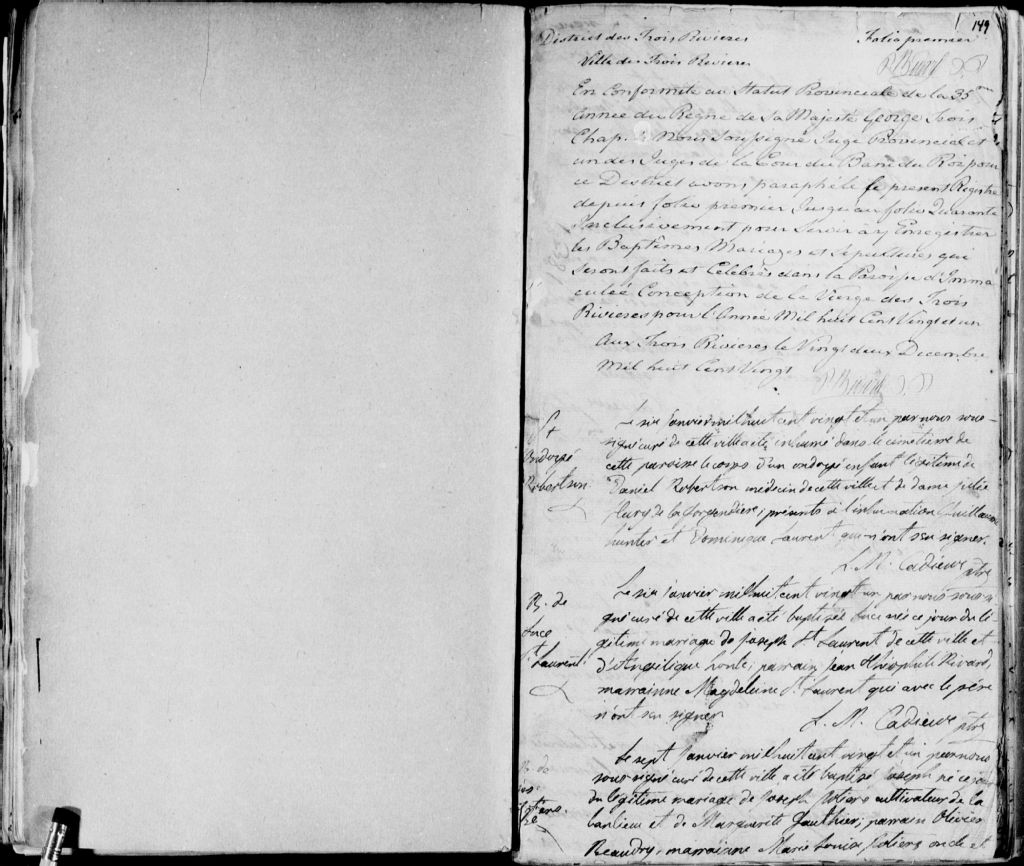 149
District des Trois Rivieres
Folio premier
Ville des Trois Rivieres
En Conformité au Statut Provinciale de la 35me
Année du Regne de Sa Majesté George Trois
Chap. Nous Soussigné Juge Provincial et
un des Juges de la Cour du Banc du Roi pour
ce District avons paraphé le present Régistre
depuis folio premier Jusqu'au folio Quarante
Inclusivement pour Servir à y Enregistrer
les Baptêmes Mariages et Sepultures qui
Seront faits et Célébrés dans la Paroisse d'Imma
culée Conception de la Vierge des Trois
Rivieres pour l'Année Mil huit Cent Vingt et un
Aux Trois Rivieres le Vingt deux Decembre
Mil huit Cent Vingt
S.
Ondoyé
Robertson
Le six Janvier mil huit cent vingt et un par nous sous-
signé curé de cette ville a été inhumé dans le cimetière de
cette paroisse le corps d'un ondoyé enfant légitime de
Daniel Robertson médecin de cette ville et de dame Julie
Fleury de la Gorgendière; présents à l'inhumation Guillaume
hunter et Dominique Laurent qui n'ont seu signer.
L. M. Cadieux ptre
B. de
Luce
St Laurent
Le six janvier mil huit cent vingt et un par nous sous-si
gné curé de cette ville a été baptisée Luce née ce jour du lé
gitime mariage de Joseph St Laurent de cette ville et
d'Angélique ; parrain Jean Théophile Rivard,
marrainne Magdeleine St Laurent qui avec le père
n'ont seu signer
L. M. Cadieux ptre
B. de
Jos.
Le sept Janvier mil huit cent vingt et un par nous
sous-signé curé de cette ville a été baptisé Joseph né ce jour
du légitime mariage de Joseph Poitiers cultivateur de la
banlieue et de Marguerite Gauthier; parrain Olivier
Beaudry, marrainne Marie Louise Poitiers oncle et